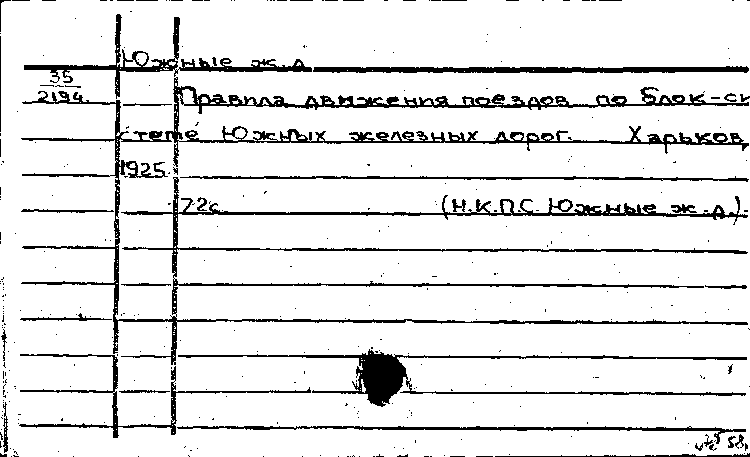 Южные ж.д.
35
2194.
Правила движения поездов по Блок-си
стеме Южных железных дорог. Харьков,
1925.
72с. (Н.К.П.С. Южные ж.д.).
58